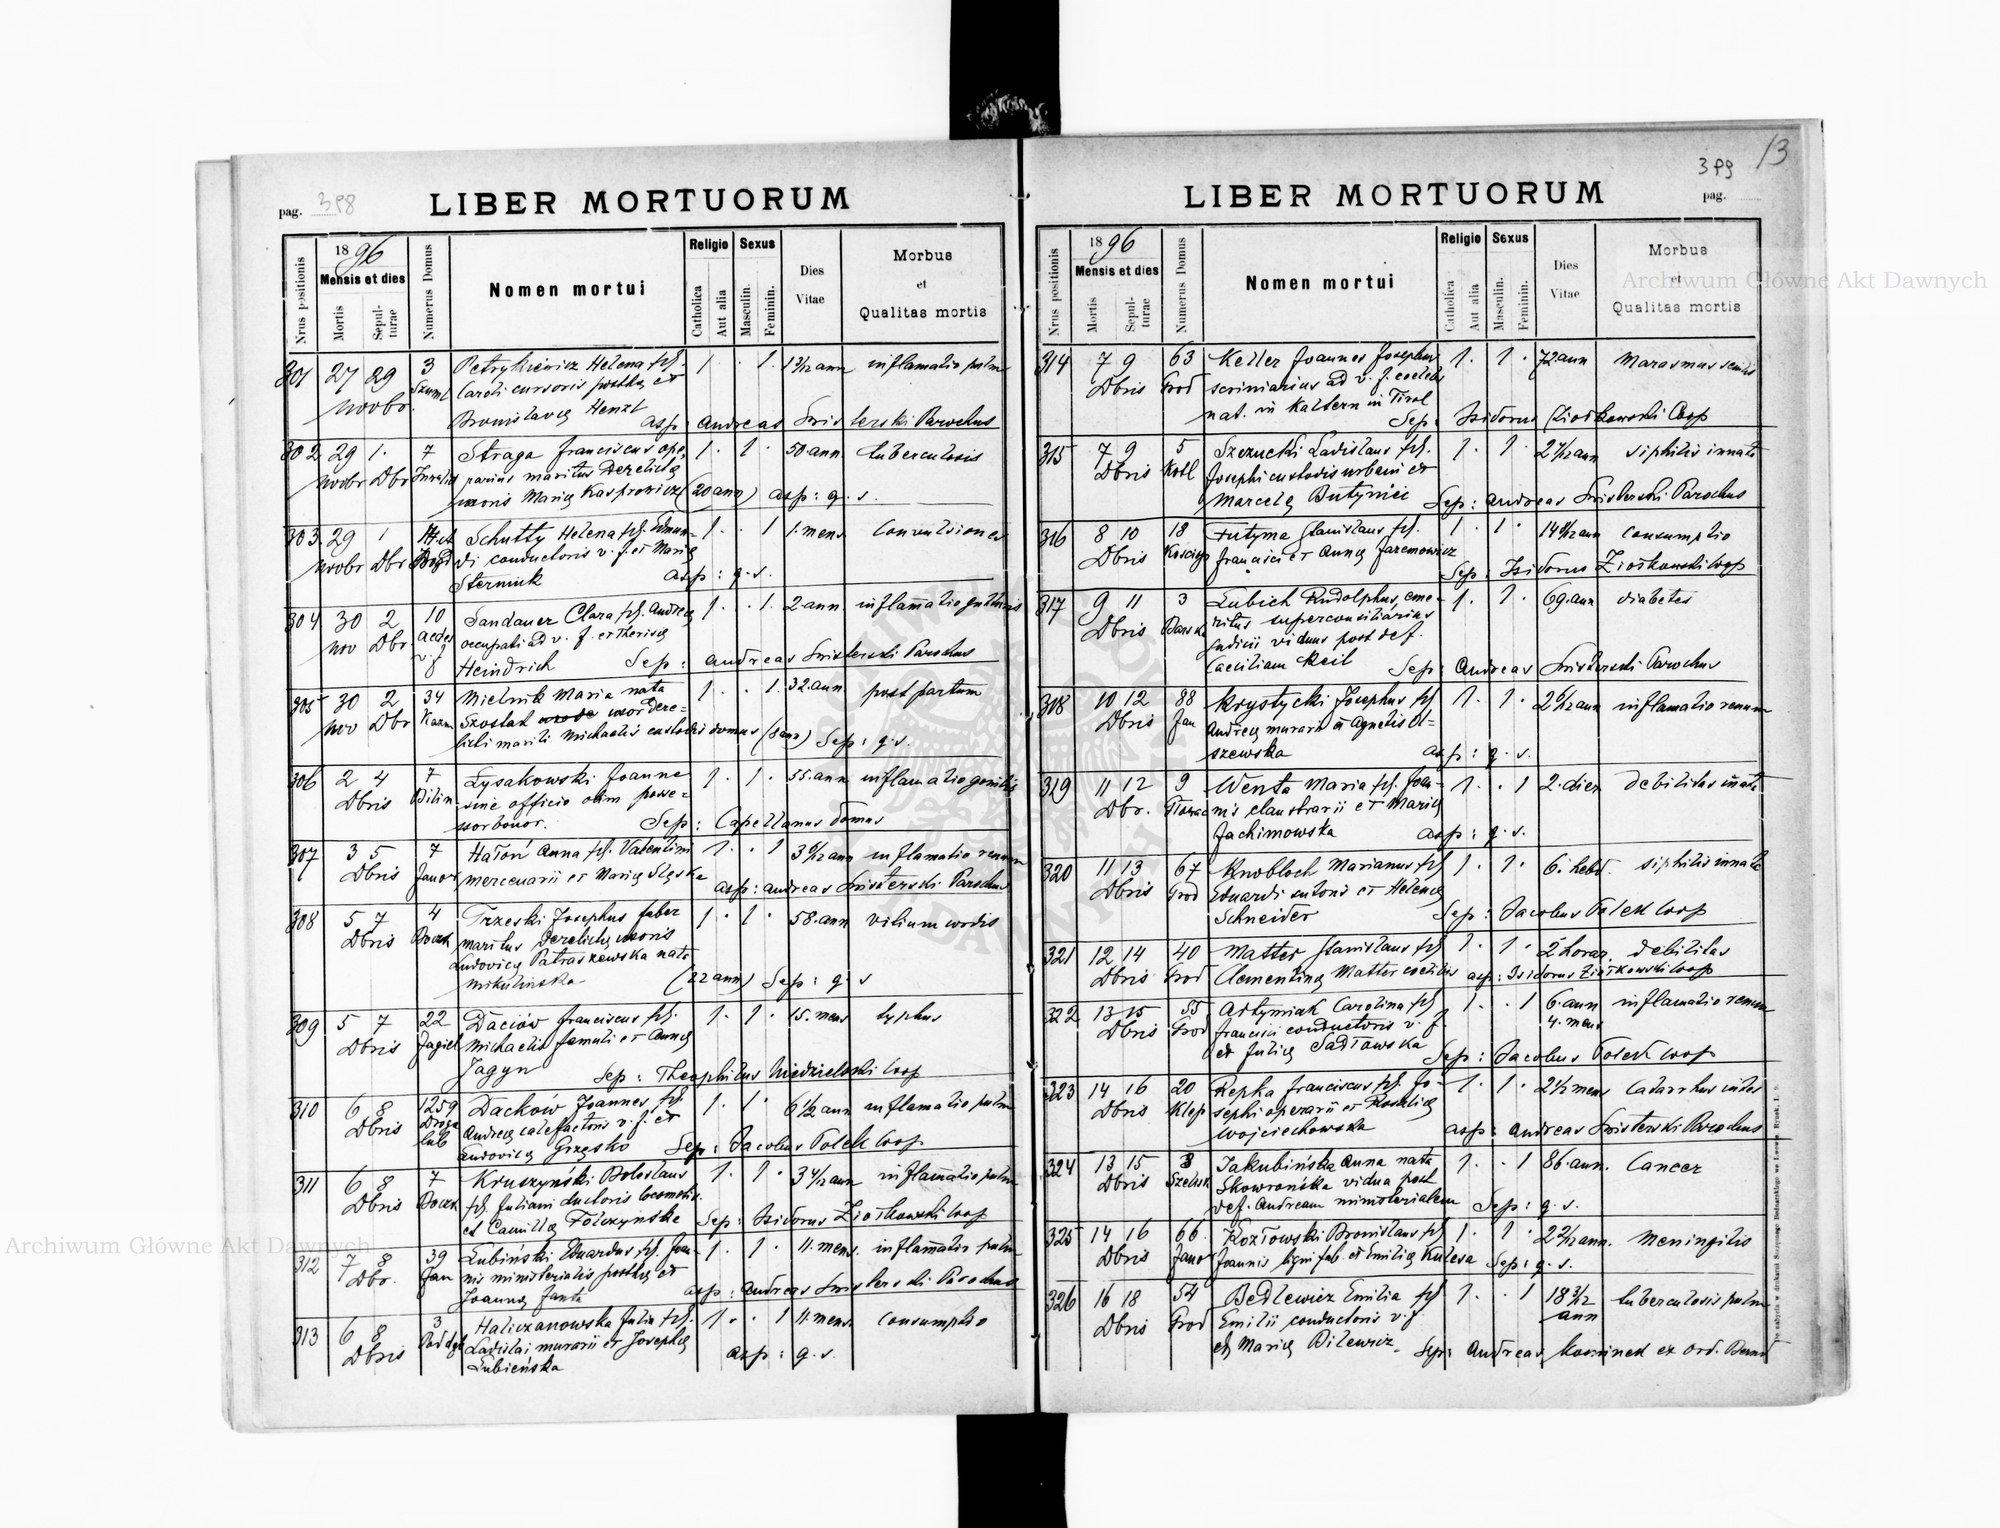 13
398
pag.
LIBER MORTUORUM
1896
Nrus positionis
Mensis et dies
Mortis
Sepul-
turae
Numerus Domus
Nomen mortui
Religio
Catholica
Aut alia
Sexus
Masculin.
Feminin.
Dies
Vitae
Morbus
et
Qualitas mortis
301 27 29 3 Petrykiewicz Helena fil. 1 · · 1. inflamatio pulm
Novbr. Caroli cursoris postkę et
Bronislavię Henzl asp: Andreas Parochus
302 29 1. 7 Straga Franciscus ope- 1 · 1 · 50 ann. tuberculosis
Novbr Dbr rarius maritus derelictę
uxoris Marię Kasprowicz (20 ann) asp: q. s.
303 29 1 Schutty Helena fil. Edmun- 1 · · 1 1. mens. Convulsiones
Novbr Dbr di conductoris v. f. et Marię
Sterniuk asp: q. s.
304 30 2 10 Sandauer Clara fil. Andreę 1 · · 1. 2. ann. inflamatio gutturis
Nov Dbr Aedes occupati ad v. f. et Theresię
v. f. Heindrich Sep: Andreas Parochus
305 30 2 34 Mielnik Maria nata 1 · · 1. 32. ann. post partum
Nov Dbr Kazm Szostak uxor dere-
licti mariti Michaelis custodis domus Sep: q. s.
306 2 4 7 Łysakowski Joannes 1 · 1 · 55. ann
Dbris Bilin sine officio olim posse-
ssor bonor. Sep: Capellanus domus
307 3 5 7 Hałoń Anna fil. Valentini 1 · · 1 inflamatio renum
Dbris Janow mercenarii et Marię Ślęska asp: Andreas Parochus
308 5 7 4 Trzeski Josephus faber 1 · 1 · 58. ann vitium cordis
Dbris maritus derelictę uxoris
Ludovicę Patraszewska nata
Mikulińska (22 ann) Sep: q. s
309 5 7 22 Daciów Franciscus fil. 1 · 1 · 15. mens typhus
Dbris Jagiel Michaelis famuli et Annę
Jagyn Sep: Theophilus Niedzielski Coop
310 6 8 1259 Dacków Joannes fil. 1 · 1 · 6 1/2 ann inflamatio pulm
Dbris Droga Andreę calefactoris v. f. et
lub Ludovicę Grzęsko Sep: Jacobus Polek Coop
311 6 8 7 Kruszyński Boleslaus 1 · 1 · 3 4/12 ann inflamatio pulm
Dbris fil. Juliani ductoris locomotiv.
et Camillę Fołczyńske Sep: Isidorus Ziołkowski Coop
312 7 8 39 Łubiński Eduardus fil. Joan- 1 · 1 · 11. mens. inflamatio pulm
Dbr. Jan nis ministerialis postkę et
Joannę Janta asp: Andreas Parochus
313 6 8 3 Haliczanowska Julia fil. 1 · · 1 11. mens. consumptio
Dbris Ladislai murarii et Josephę
Łubieńska asp: q. s.
399
pag.
LIBER MORTUORUM
1896
Nrus positionis
Mensis et dies
Mortis
Sepul-
turae
Numerus Domus
Nomen mortui
Religio
Catholica
Aut alia
Sexus
Masculin.
Feminin.
Dies
Vitae
Morbus
et
Qualitas mortis
314 7 9 63 Keller Joannes Josephus 1 · 1 · 72 ann Marasmus senilis
Dbris Grod scriniarius ad v. f. coelebs
nat. in Kaltern in Tirol Sep: Isidorus Ziołkowski Coop
315 7 9 5 Szczucki Ladislaus fil. 1 · 1 · 2 4/12 ann siphilis innata
Dbris Kotl Josephi custodis urbani et
Marcelę Butynici Sep: Andreas Parochus
316 8 10 18 Futyma Stanislaus fil. 1 · 1 · consumptio
Dbris Francisci et Annę Jaremowicz
Sep: Isidorus Ziołkowski Coop
317 9 11 3 Lubich Rudolphus, eme- 1 · 1 · 69. ann diabetes
Dbris ritus superconsiliarius
Judicii viduus post def.
Caeciliam Keil Sep: Andreas Parochus
318 10 12 88 Krystycki Josephus fil 1 · 1 · 2 6/12 ann inflamatio renum
Dbris Jan Andreę murarii et Agnetis Ol-
szewska asp: q. s.
319 11 12 9 Wenta Maria fil. Joan- 1 · · 1 2. dier debilitas innata
Dbr. nis claustrarii et Marię
Jachimowska asp: q. s.
320 11 13 67 Knobloch Marianus fil 1 · 1 · 6. hebd. siphilis innata
Dbris Grod Eduardi sutoris et Helenę
Schneider Sep: Jacobus Polek Coop
321 12 14 40 Matter Stanislaus fil 1 · 1 · 2 horar. debilitas
Dbris Grod Clementinę Matter coelibis asp: Isidorus Ziołkowski Coop
322 13 15 55 Artymiak Carolina fil 1 · · 1 6. ann inflamatio renum
Dbris Grod Francisci conductoris v. f. 4. mens
et Julię Sadłowska Sep: Jacobus Polek Coop
323 14 16 20 Repka Franciscus fil. Jo- 1 · 1 · 2 1/2 mens Catarrhus intes
Dbris Klep sephi operarii et Rosalię
Wojciechowska asp: Andreas Parochus
324 13 15 3 Jakubińska Anna nata 1 · · 1 86. ann. Cancer
Dbris Skowrońska vidua post
def. Andream ministerialem Sep: q. s.
325 14 16 66 Kozłowski Bronislaus fil 1 · 1 · 2 2/12 ann. Meningitis
Dbris Janow Joannis lign. fab et Emilię Kulesa Sep: q. s.
326 16 18 54 Bedlewicz Emilia fil 1 · · 1 18 3/12 tuberculosis pulm
Dbris Grod Emilii conductoris v. f. ann
et Marię Bilewicz. Sep: Andreas Kominek ex Ord. Bernd
Archiwum Główne Akt Dawnych
Archiwum Główne Akt Dawnych